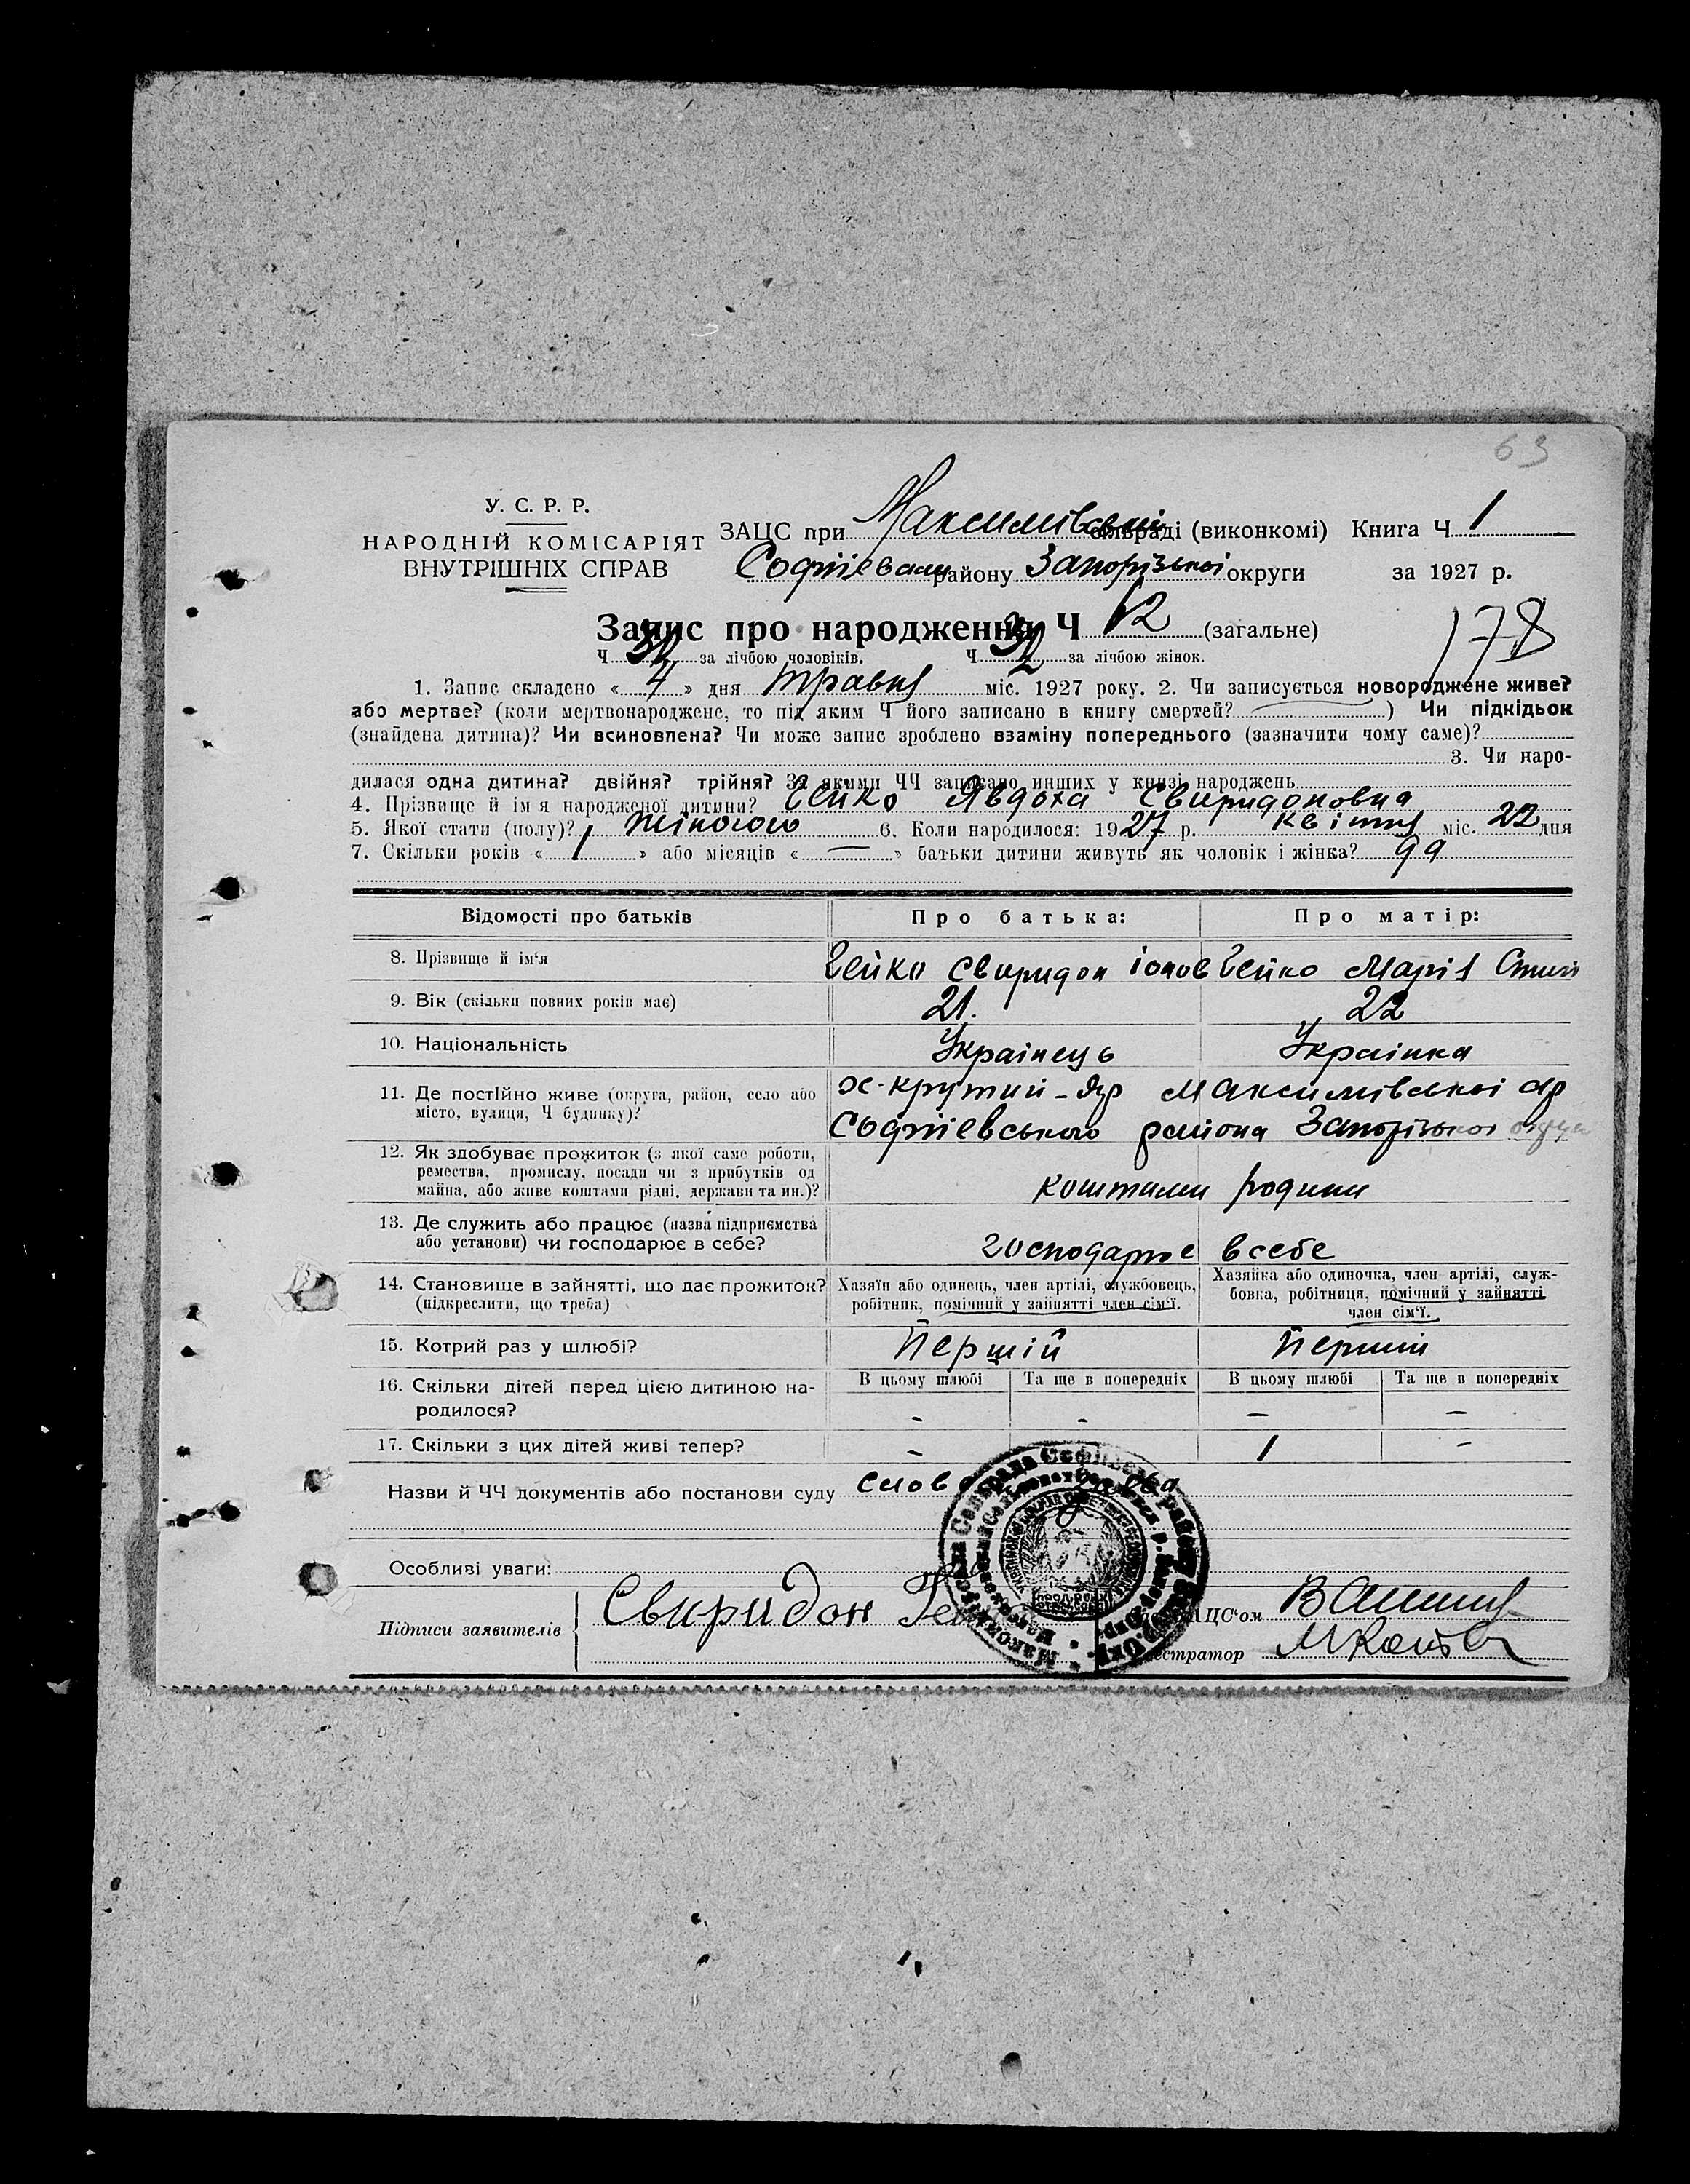 63
У. С. Р. Р.
НАРОДНІЙ КОМІСАРІЯТ
ВНУТРІШНІХ СПРАВ
ЗАЦС при Максимівській сільраді (виконкомі) Книга Ч 1
Софіївськ району Запорізької округи за 1927 р.
Запис про народження Ч 62 (загальне)
178
Ч за лічбою чоловіків. Ч 32 за лічбою жінок.
1. Запис складено « 4 » дня травня міс. 1927 року. 2. Чи записується новороджене живе?
або мертве? (коли мертвонароджене, то під яким Ч його записано в книгу смертей? ) Чи підкідьок
(знайдена дитина)? Чи всиновлена? Чи може запис зроблено взаміну попереднього (зазначити чому саме)?
3. Чи наро-
дилася одна дитина? двійня? трійня? За якими ЧЧ записано инших у книзі народжень
4. Прізвище й ім я народженої дитини? Гейко Явдоха Свиридоновна
5. Якої стати (полу)? жіночого 6. Коли народилося: 1927 р. квітня міс. 22 дня
7. Скільки років « 1 » або місяців « — » батьки дитини живуть як чоловік і жінка?
Відомості про батьків Про батька: Про матір:
8. Прізвище й ім‘я Гейко Свиридон Іонов Гейко Марія
9. Вік (скільки повних років має) 21. 22
10. Національність Українець Українка
11. Де постійно живе (округа, район, село або х-крутий-яр Максимівської
місто, вулиця, Ч будинку)? Софіївського района Запорізької
12. Як здобуває прожиток (з якої саме роботи,
ремества, промислу, посади чи з прибутків од
майна, або живе коштами рідні, держави та ин.)? коштами родини
13. Де служить або працює (назва підприємства
або установи) чи господарює в себе? господарює в себе
14. Становище в зайнятті, що дає прожиток? Хазяїн або одинець, член артілі, службовець, Хазяйка або одиночка, член артілі, служ-
(підкреслити, що треба) робітник, помічний у зайнятті член сім‘ї. бовка, робітниця, помічний у зайнятті
член сім‘ї.
15. Котрий раз у шлюбі? Першій Першій
16. Скільки дітей перед цією дитиною на- В цьому шлюбі Та ще в попередніх В цьому шлюбі Та ще в попередніх
родилося? - - — —
17. Скільки з цих дітей живі тепер? - 1 -
Назви й ЧЧ документів або постанови суду
Особливі уваги:
Підписи заявителів Свиридон Гейко ЗАЦС‘ом